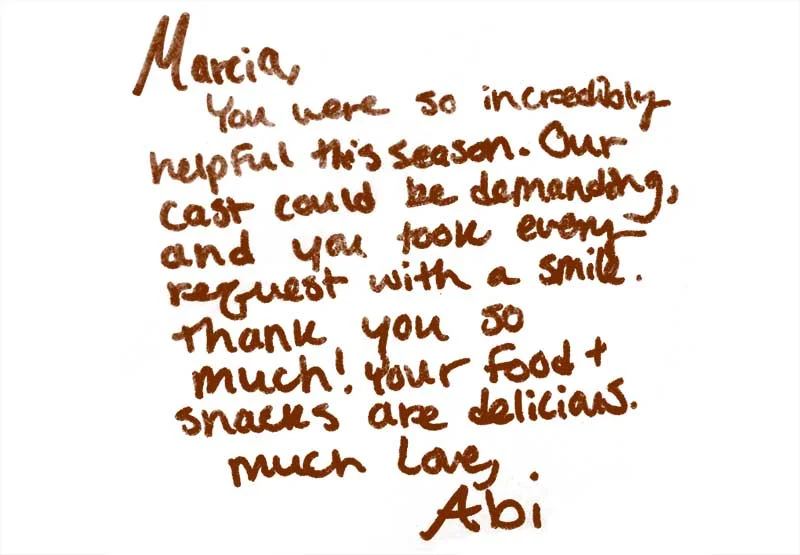 Marcia,
You were so incredibly
helpful this season. Our
cast could be demanding,
and you took every
request with a smile.
Thank you so
much! Your food +
snacks are delicious.
much love,
Abi